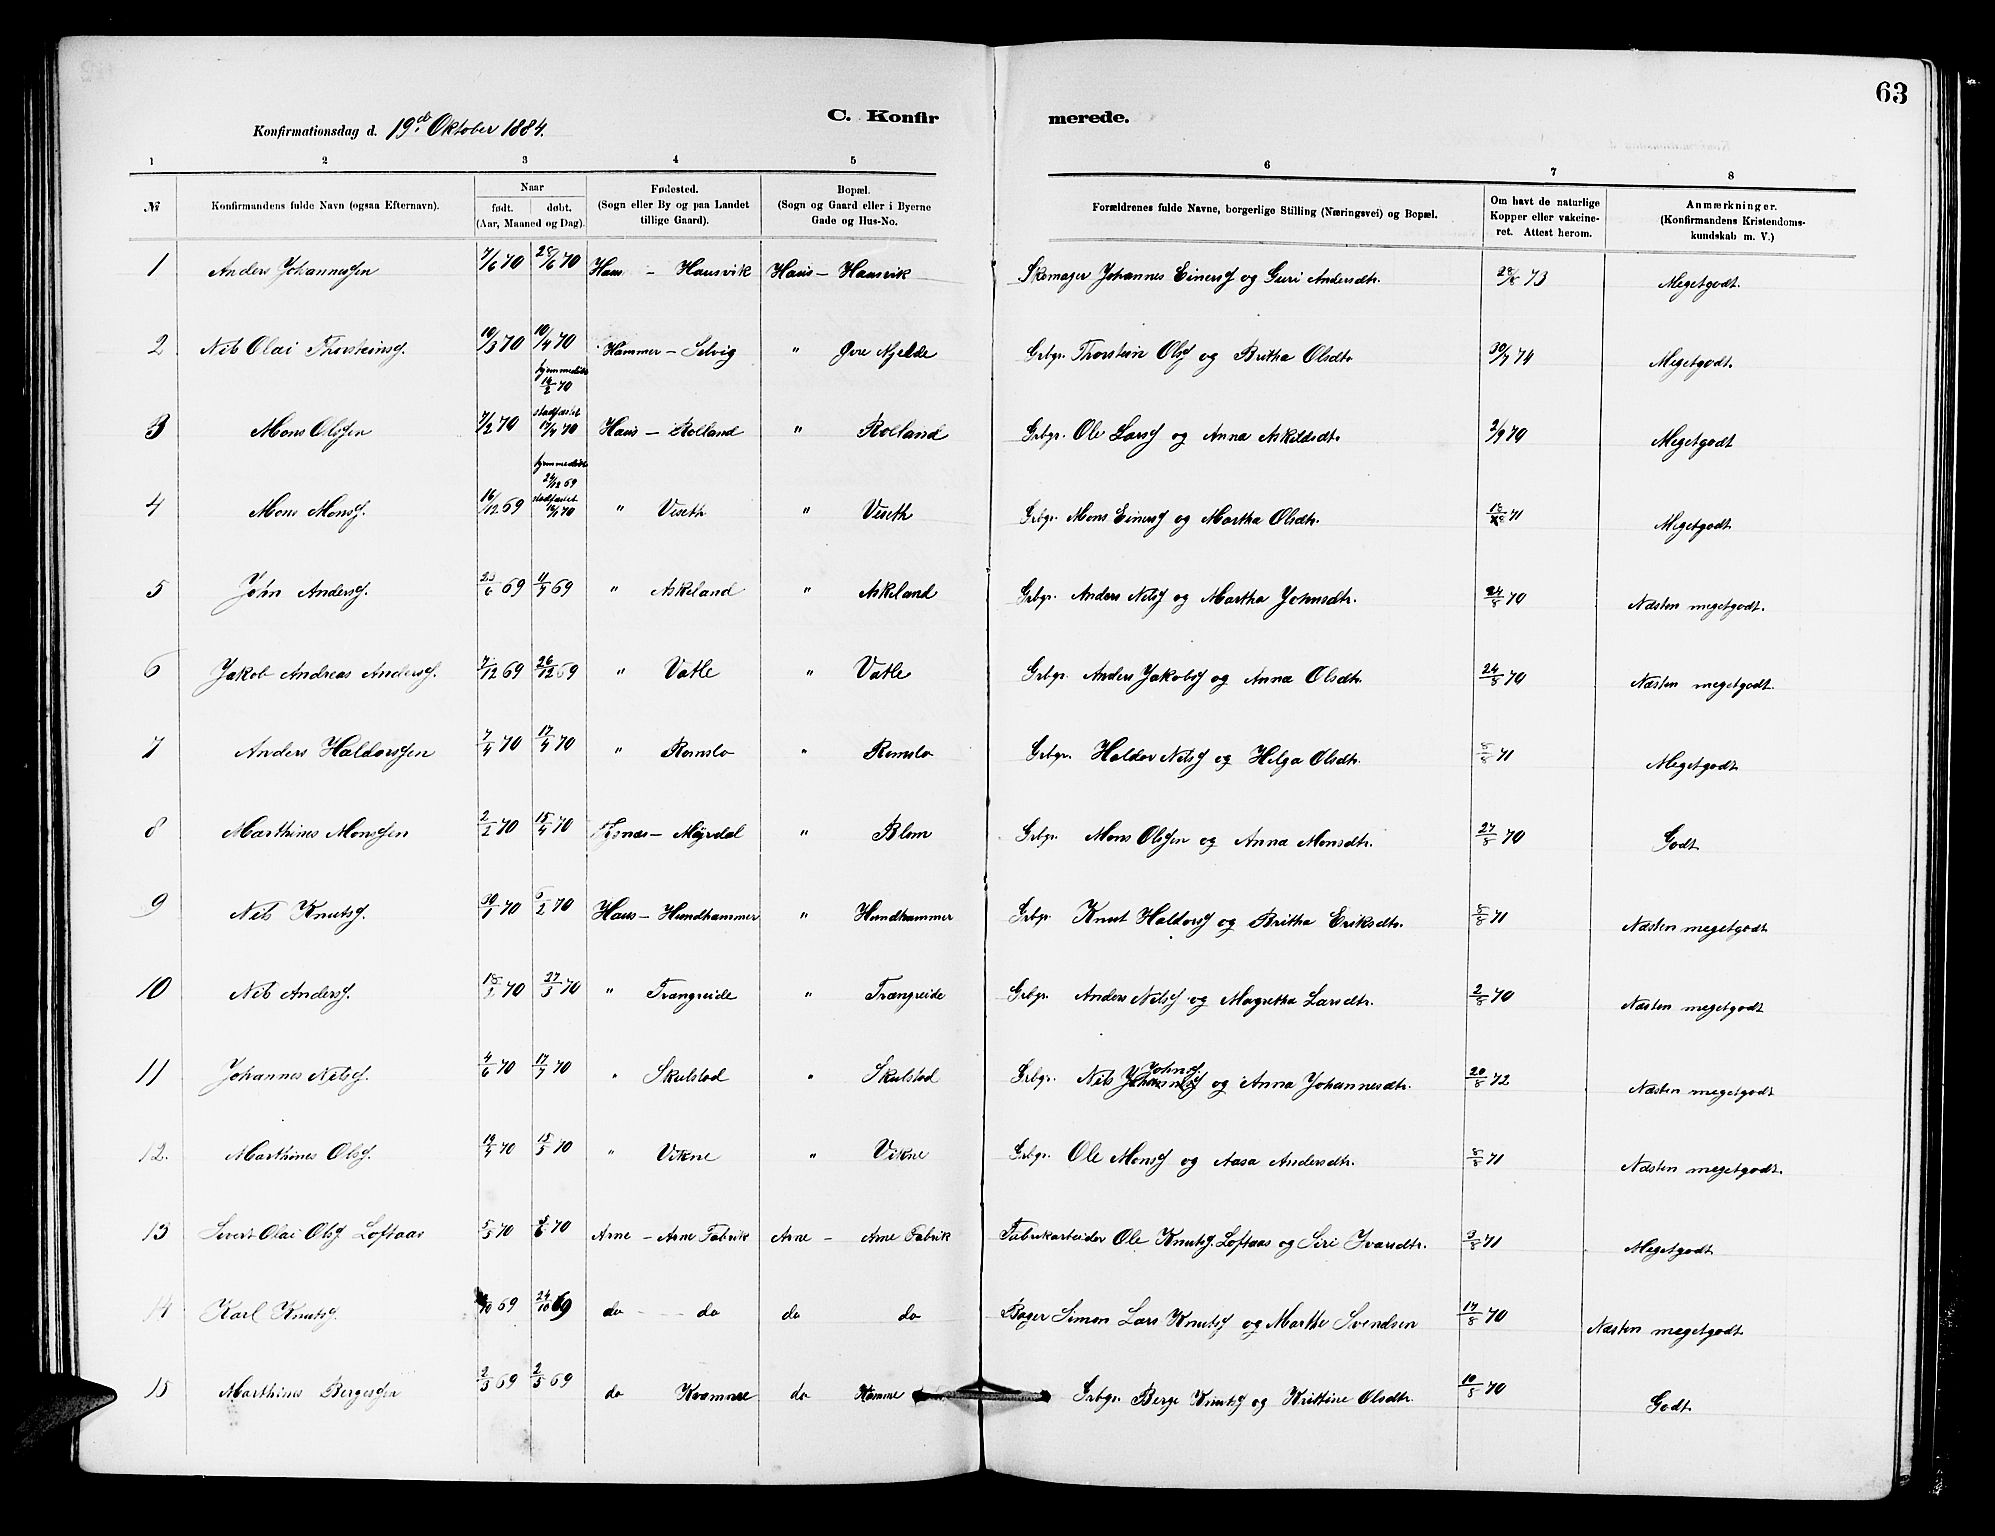 63
Konfirmationsdag d. 19de Oktober 1884.
C. Konfir
merede.
1 2 3 4 5 6 7 8
№ Konfirmandens fulde Navn (ogsaa Efternavn). Naar født. døbt. (Aar, Maaned og Dag). Fødested. (Sogn eller By og paa Landet tillige Gaard). Bopæl. (Sogn og Gaard eller i Byerne Gade og Hus-No. Forældrenes fulde Navne, borgerlige Stilling (Næringsvei) og Bopæl. Om havt de naturlige Kopper eller vakcineret. Attest herom. Anmærkninger. (Konfirmandens Kristendomskundskab m. V.)
1 Anders Johannessen 7/6 70 28/6 70 Haus – Hausvik Haus – Hausvik Skomager Johannes Einersf og Guri Andersdtr. 28/8 73 Megetgodt.
2 Nils Olai Thorsteinsf. 10/3 70 10/4 70 Hammer – Selvig " Øvre Mjelde Grbgr. Thorstein Olsf og Britha Olsdtr 30/7 74 Megetgodt.
3 Mons Olssen 7/2 70 hjemmedøbt 70 stadfæstet 17/4 70 Haus – Rolland " Rolland Grbgr. Ole Larsf og Anna Askildsdtr. 2/9 70 Megetgodt
4 Mons Monsf. 16/12 69 hjemmedøbt 12 69 stadfæstet 70 " Viseth " Viseth Grbgr. Mons Einersf og Martha Olsdtr. 18/8 71 Megetgodt
5 John Andersf. 23/6 69 11/7 69 " Askeland " Askeland Grbgr. Anders Nilsf og Martha Johnsdtr. 24/8 70 Næsten megetgodt.
6 Jakob Andreas Andersf. 7/12 69 26/12 69 " Vatle " Vatle Grbgr. Anders Jakobsf og Anna Olsdtr. 24/8 70 Næsten megetgodt.
7 Anders Haldorssen 7/4 70 17/4 70 " Romslo " Romslo Grbgr. Haldor Nilsf og Helga Olsdtr. 8/8 71 Megetgodt
8 Marthines Monssen 2/2 70 15/4 70 Tysnæs – Myrdal " Blom Grbgr. Mons Olssen og Anna Monsdtr. 27/8 70 Godt
9 Nils Knutsf. 30/1 70 6/2 70 Haus – Hundhammer " Hundhammer Grbgr. Knut Haldorsf og Britha Eriksdtr. 8/8 71 Næsten megetgodt
10 Nils Andersf. 18/3 70 27/3 70 " Trængreide " Trængreide Grbgr. Anders Nilsf og Magretha Larsdtr. 2/8 70 Næsten megetgodt
11 Johannes Nilsf. 4/6 70 17/7 70 " Skulstad " Skulstad Grbgr. Nils Johnsf og Anna Johannesdtr. 20/8 72 Næsten megetgodt
12. Marthines Olsf. 19/4 70 15/5 70 " Vikne " Vikne Grbgr. Ole Monsf og Aasa Andersdtr. 8/8 71 Næsten megetgodt.
13 Sivert Olai Olsf Loftaas 5/5 70 5/6 70 Arne – Arne Fabrik Arne – Arne Fabrik Fabrikarbeider Ole Knutsf. Loftaas og Siri Ivarsdtr. 9/8 71 Megetgodt
14 Karl Knutsf. /10 69 24/10 69 do – do do do Bager Simon Lars Knutsf og Marthe Svendsen 17/8 70 Næsten megetgodt
15 Marthines Bergessen 2/3 69 2/5 69 do Kvamme do Kvamme Grbgr. Berge Knutsf og Kristine Olsdtr. 10/8 70 Godt